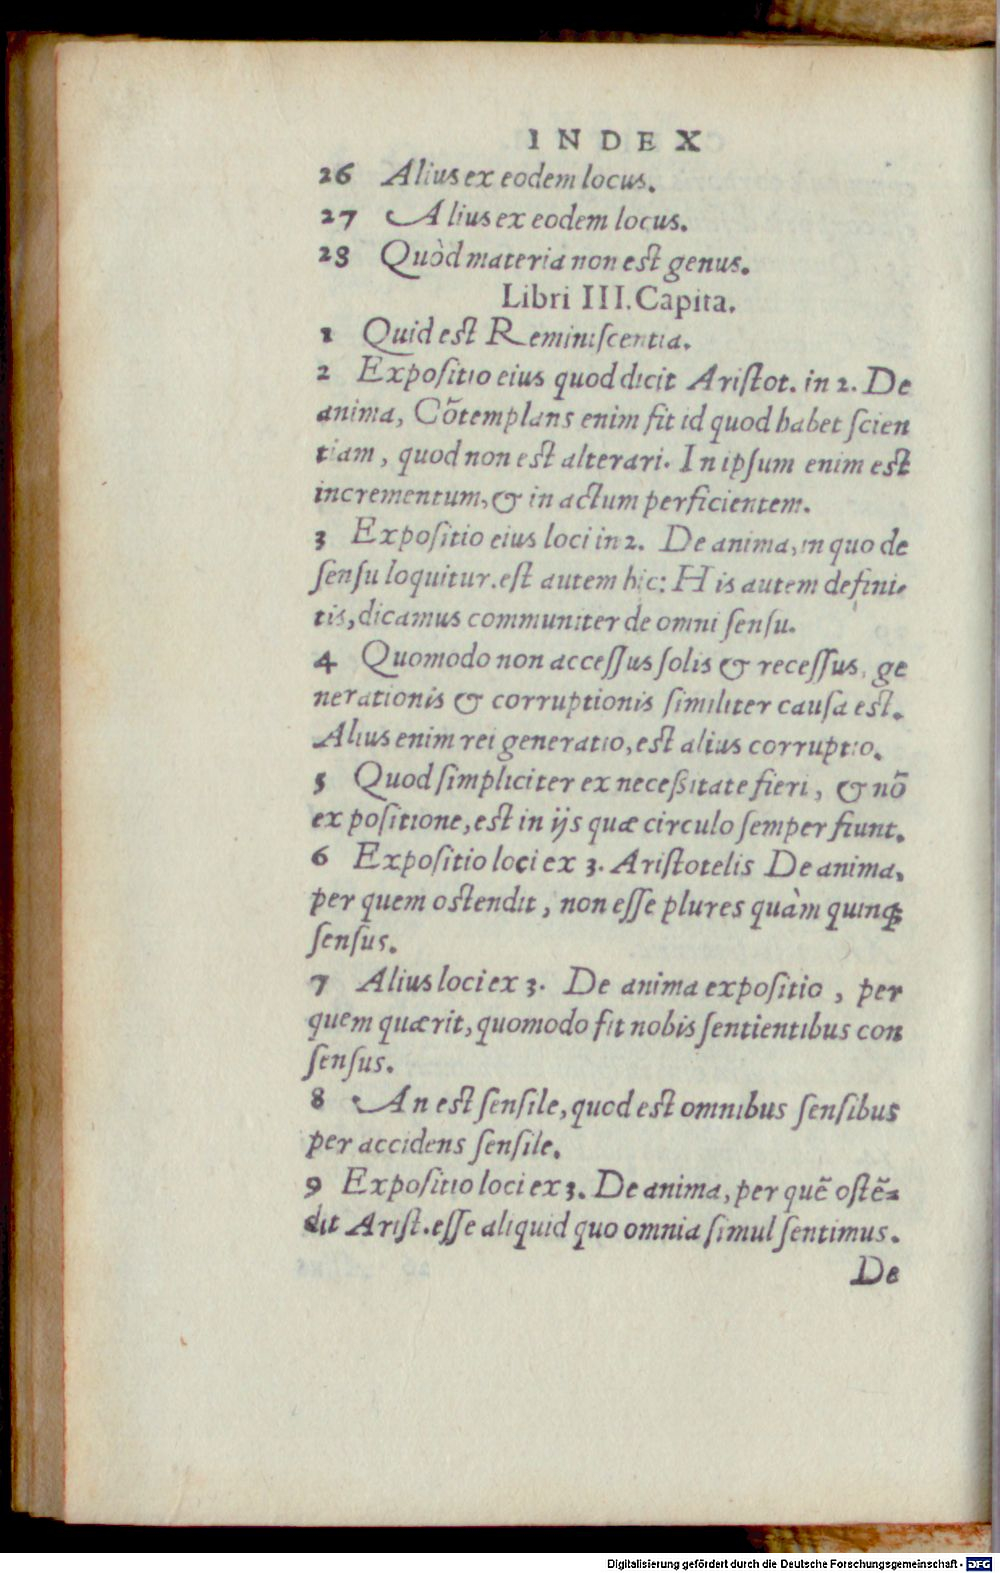 INDEX
26 Alius ex eodem locus.
27 Alius ex eodem locus.
28 Quòd materia non est genus.
Libri III. Capita.
1 Quid est Reminiſcentia.
2 Expoſitio eius quod dicit Ariſtot. in 2. De
anima, Cõtemplans enim fit id quod habet ſcien
tiam, quod non est alterari. In ipſum enim est
incrementum, & in actum perficientem.
3 Expoſitio eius loci in 2. De anima, in quo de
ſenſu loquitur. eſt autem hic: His autem defini-
tis, dicamus communiter de omni ſenſu.
4 Quomodo non acceſſus ſolis & receſſus, ge
nerationis & corruptionis ſimiliter cauſa eſt.
Alius enim rei generatio, est alius corruptio.
5 Quod ſimpliciter ex neceßitate fieri, & nõ
ex poſitione, est in ijs quæ circulo ſemper fiunt.
6 Expoſitio loci ex 3. Ariſtotelis De anima,
per quem ostendit, non eſſe plures quàm quinqꝫ
ſenſus.
7 Alius loci ex 3. De anima expoſitio, per
quem quærit, quomodo fit nobis ſentientibus con
ſenſus.
8 An est ſenſile, quod est omnibus ſenſibus
per accidens ſenſile.
9 Expoſitio loci ex 3. De anima, per quẽ oſtẽ-
dit Ariſt. eſſe aliquid quo omnia ſimul ſentimus.
De
Digitalisierung gefördert durch die Deutsche Forschungsgemeinschaft - DFG